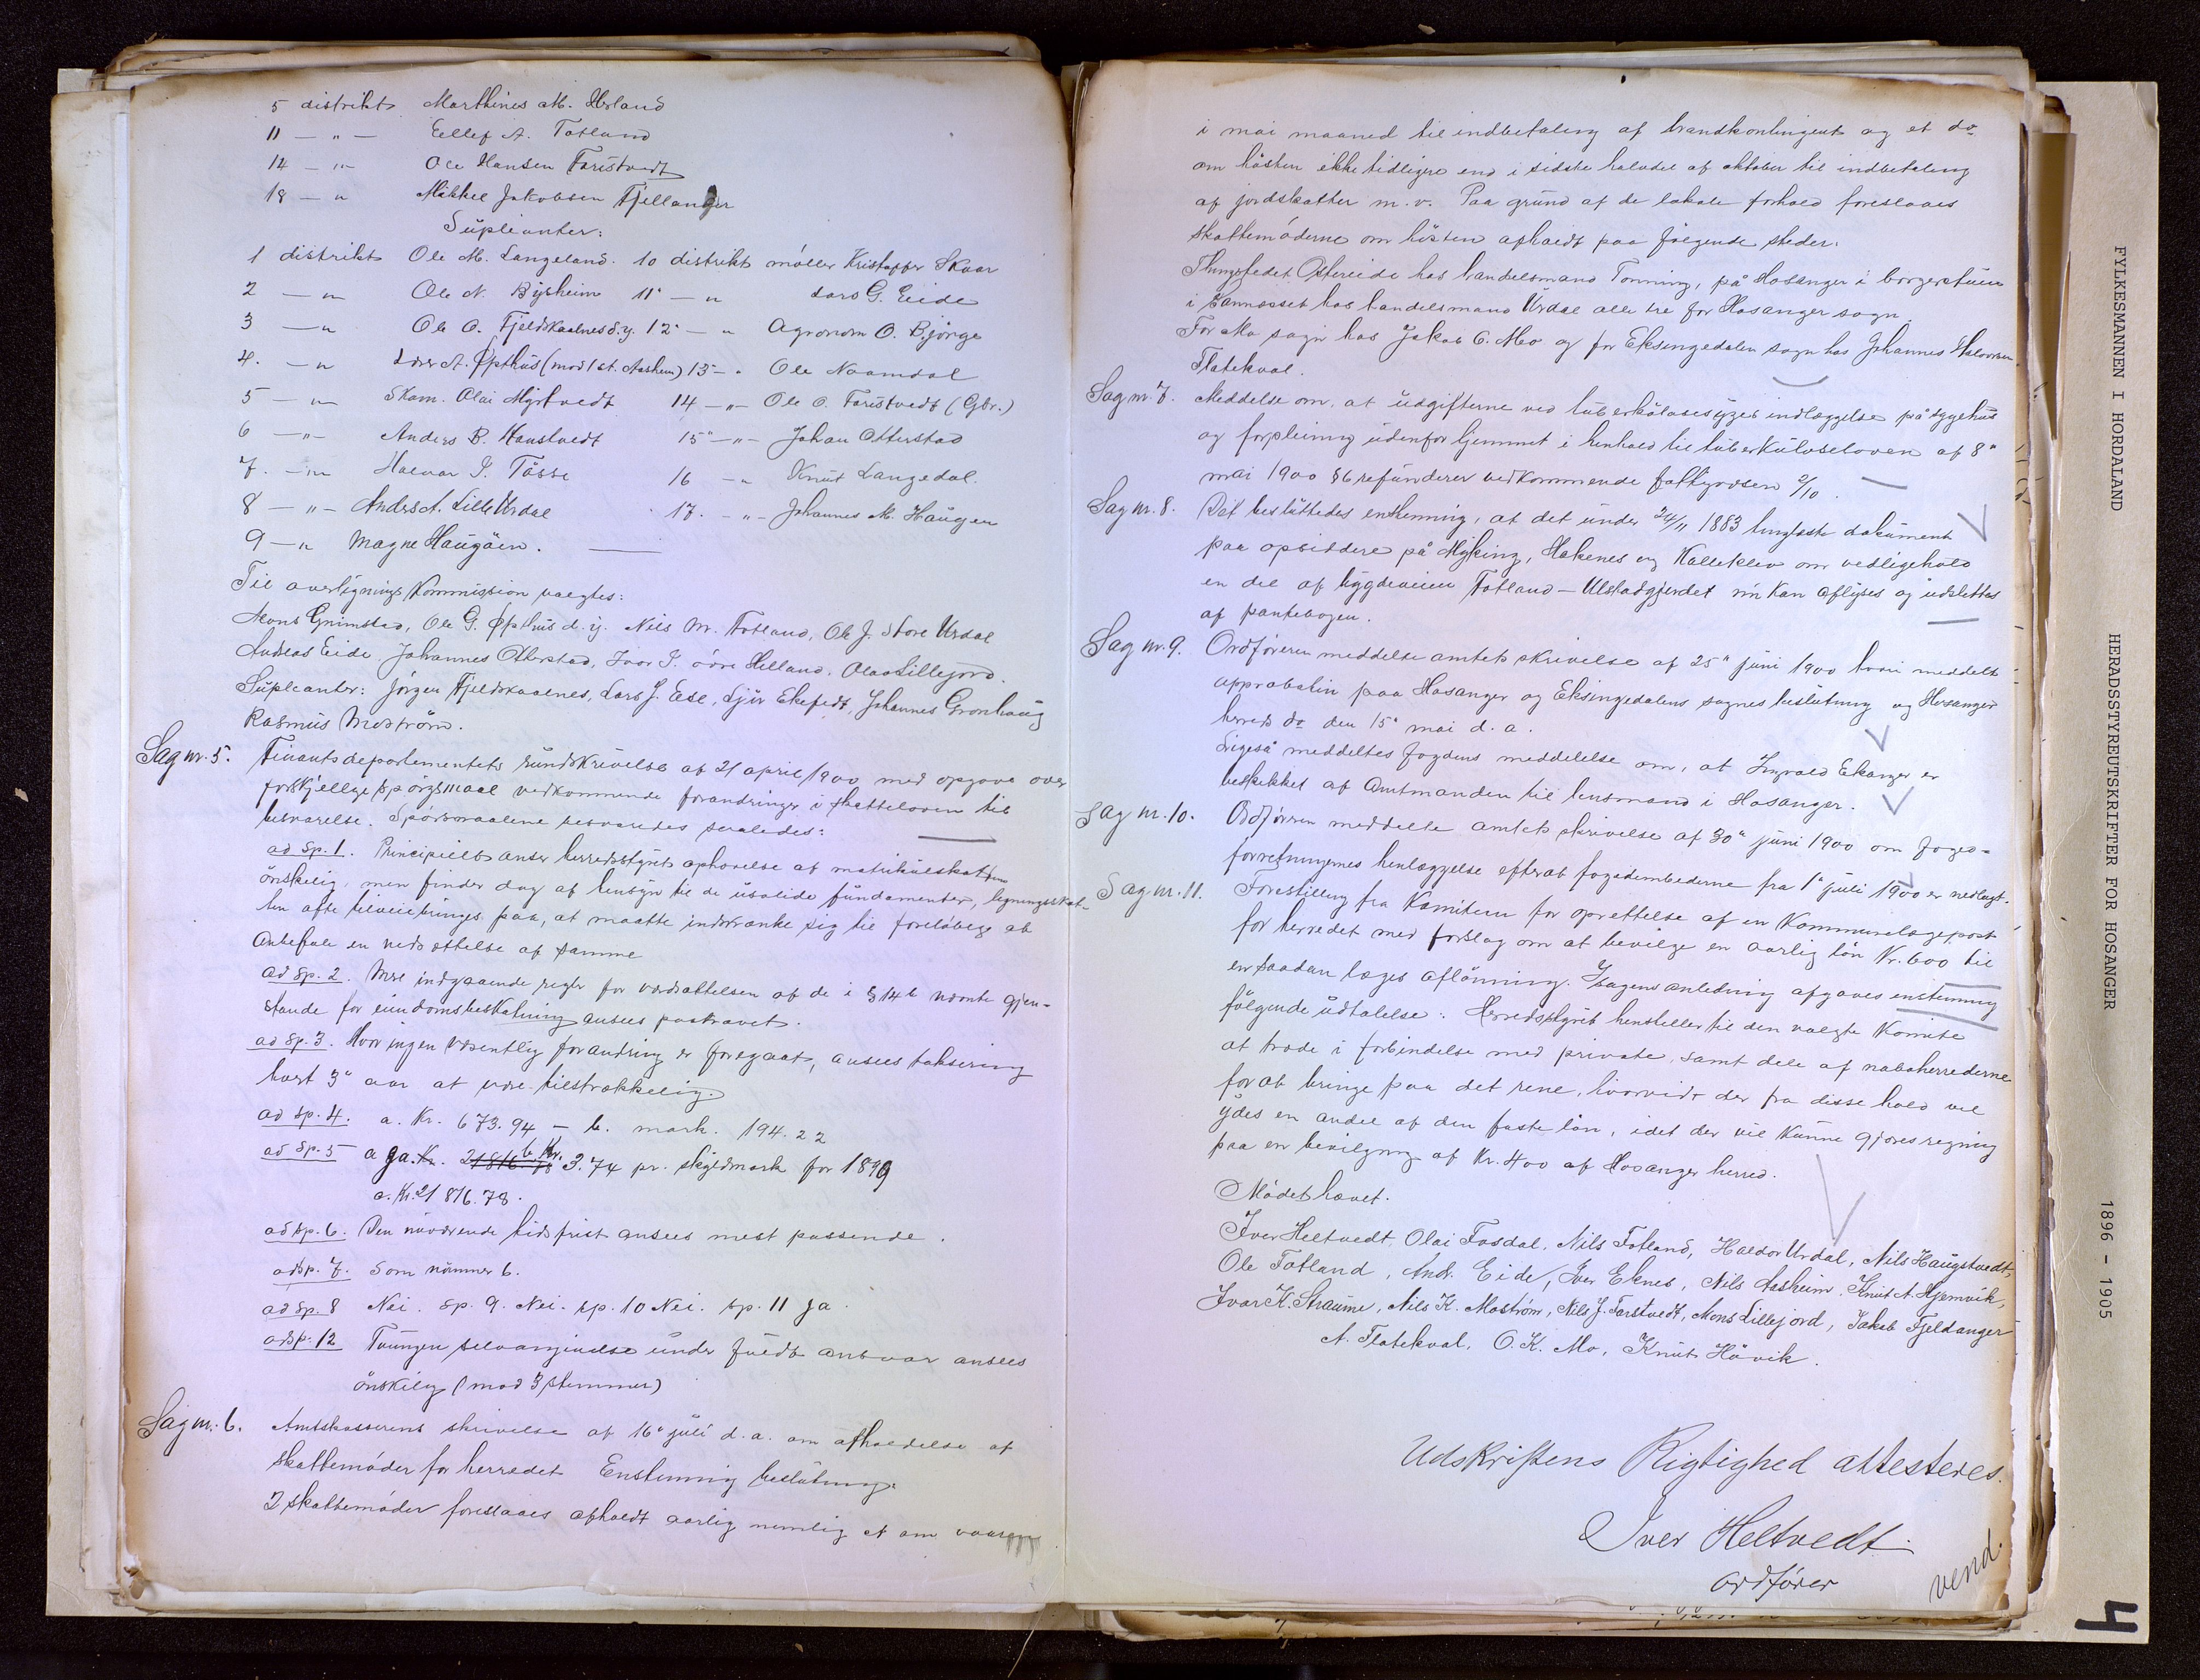 5 distrikt Marthines M. Hosland
11 — " — Eellef A. Totland
14 — " — Ole Hansen Faristvedt
18 — " Mikkel Jakobsen Fjellanger
Supleanter:
1 distrikt Ole M. Langeland. 10 distrikt møller Kristoffer Skaar
2 — " Ole N. Bysheim 11" — " Lars G. Eide
3 — " Ole O. Fjeldskaalnes d.y. 12" — " Agronom O. Bjørge
4. — " Lærer A. Øpsthus (mod 1 st. Aasheim) 13 — " Ole Naamdal
5 — " Skom. Olai Myrtvedt 14 — " — Ole O. Faristvedt (Gbr.)
6 — " — Anders B. Haustvedt 15" — " — Johan Otterstad
7. — " Halvar I. Tøsse 16 — " Knut Langedal.
8 — " — Anders A. Lille Urdal 17. — " — Johannes M. Haugen
9 — " Magne Haugøen.
Til overligningskommission valgtes:
Mons Grimstad, Ole G. Øpsthus d. y. Nils M. Totland, Ole J. Store Urdal
Andreas Eide, Johannes Otterstad, Ivar I. øvre Helland, Olav Lillejord.
Supleanter: Jørgen Fjeldskaalnes, Lars J. Ese, Sjur Ekefedt, Johannes Gronhaug
Rasmus Mostrøm.
Sag nr. 5. Finantsdepartementets rundskrivelse af 21 april 1900 med opgave over
forskjellige spørgsmaal vedkommende forandringer i skatteloven til
besvarelse. Spørsmaalene besvaredes saaledes:
ad Sp. 1. Principielt anser herredsstyret ophævelse af matrikulskatten
ønskelig, men finder dog af hensyn til de usolide fundamenter, ligningsskat-
ten ofte tilveiebringes paa, at maatte indskrænke sig til foreløbig at
anbefale en nedsættelse af samme
ad Sp. 2. Mere indgaaende regler for værdsættelsen af de i § 14 b nævnte gjen-
stande for eiendomsbeskatning ansees paakrævet.
ad Sp. 3. Hvor ingen væsentlig forandring er foregaat, ansees taksering
hvert 3" aar at være tilstrækkelig.
ad Sp. 4. a. Kr. 673.94 — b. mark. 194.22
ad Sp. 5 a ga. Kr. 21816.78 b. Kr. 3.74 pr. skyldmark for 1899
a. Kr. 21 816.78.
ad sp. 6. Den nuværende tidsfrist ansees mest passende.
ad sp. 7. Som nummer 6.
ad Sp. 8 Nei. Sp. 9. Nei. sp. 10 Nei. sp. 11 ja.
ad sp. 12 Tvungen selvangivelse under fuldt ansvar ansees
ønskelig (mod 3 stemmer)
Sag nr. 6. Amtskassererens skrivelse af 16" juli d. a. om afholdelse af
skattemøder for herredet. Enstemmig beslutning:
2 skattemøder foreslaaes afholdt aarlig nemlig et om vaaren
i mai maaned til indbetaling af brandkontingent og et do
om høsten ikke tidligere end i sidste halvdel af oktober til indbetaling
af jordskatter m. v. Paa grund af de lokale forhold foreslaaes
skattemøderne om høsten afholdt paa følgende steder:
Thingstedet Ostereide hos handelsmand Tonning, på Hosanger i borgerstuen
i Vannæsset hos handelsmand Urdal alle tre for Hosanger sogn.
For Mo sogn hos Jakob O. Mo og for Eksingedalen sogn hos Johannes Halvorsen
Flatekval.
Sag nr. 7. Meddelse om, at udgifterne ved tuberkulosesyges indlæggelse på sygehus
og forpleining udenfor hjemmet i henhold til tuberkuloseloven af 8"
mai 1900 § 6 refunderes vedkommende fattigvæsen 9/10.
Sag nr. 8. Det besluttedes enstemmig, at det under 24/11 1883 tinglæste dokument
paa opsiddere på Myking, Hakenes og Kalleklev om vedligehold
en del af bygdeveien Totland — Ulstadgjerdet nu kan aflyses og udslettes
af pantebogen.
Sag nr. 9. Ordføreren meddelte amtets skrivelse af 25" juni 1900 hvori meddelt
approbation paa Hosanger og Eksingedalens sognes beslutning og Hosanger
herreds do den 15" mai d. a.
Ligeså meddeltes fogdens meddelelse om, at Ingvald Ekanger er
beskikket af Amtmanden til lensmand i Hosanger.
Sag nr. 10. Ordføreren meddelte amtets skrivelse af 30" juni 1900 om foged-
forretningernes henlæggelse efterat fogedembederne fra 1" juli 1900 er nedlagt.
Sag nr. 11. Forestilling fra Komiteen for oprettelse af en Kommunelægepost
for herredet med forslag om at bevilge en aarlig løn Kr. 600 til
en saadan læges aflønning. I sagens anledning afgaves enstemmig
følgende udtalelse: Herredsstyret henstiller til den valgte Komite
at træde i forbindelse med private, samt dele af naboherrederne
for at bringe paa det rene, hvorvidt der fra disse hold vil
ydes en andel af den faste løn, idet der vil kunne gjøres regning
paa en bevilgning af Kr. 400 af Hosanger herred.
Mødet hævet.
Iver Heltvedt, Olai Fosdal, Nils Totland, Haldor Urdal, Nils Haugstvedt,
Ole Totland, Andr. Eide, Iver Eknes, Nils Aasheim, Knut A. Hjemvik,
Ivar K. Straume, Nils K. Mostrøm, Nils J. Farstvedt, Mons Lillejord, Jakob Fjeldanger
A. Flatekval, O. K. Mo, Knut Håvik.
Udskriftens Rigtighed attesteres.
Iver Heltvedt
ordfører
vend.
FYLKESMANNEN I HORDALAND HERADSSTYREUTSKRIFTER FOR HOSANGER 1896 - 1905
4